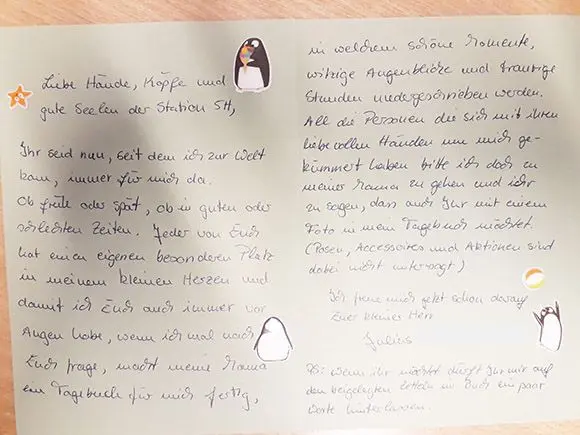 Liebe Hände, Köpfe und
gute Seelen der Station 5H,
Ihr seid nun, seit dem ich zur Welt
kam, immer für mich da.
Ob früh oder spät, ob in guten oder
schlechten Zeiten. Jeder von Euch
hat einen eigenen besonderen Platz
in meinem kleinen Herzen und
damit ich Euch auch immer vor
Augen habe, wenn ich mal nach
Euch frage, macht meine Mama
ein Tagebuch für mich fertig,
in welchem schöne Momente,
witzige Augenblicke und traurige
Stunden niedergeschrieben werden.
All die Personen die sich mit ihren
liebevollen Händen um mich ge-
kümmert haben bitte ich doch zu
meiner Mama zu gehen und ihr
zu sagen, dass auch Ihr mit einem
Foto in mein Tagebuch möchtet.
(Posen, Accessoires und Aktionen sind
dabei nicht untersagt)
Ich freue mich jetzt schon darauf
Euer kleiner Herr
Julius
PS: Wenn ihr möchtet dürft Ihr mir auf
den beigelegten Zetteln im Buch ein paar
Worte hinterlassen.